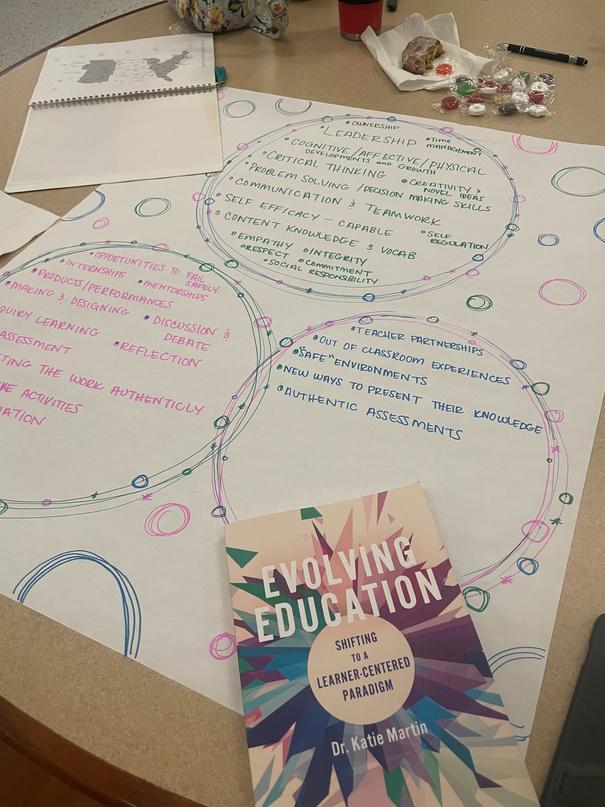 • OWNERSHIP
• LEADERSHIP • TIME MANAGEMENT
• COGNITIVE/AFFECTIVE/PHYSICAL
DEVELOPMENTS AND GROWTH
• CRITICAL THINKING • CREATIVITY & NOVEL IDEAS
• PROBLEM SOLVING / DECISION MAKING SKILLS
• COMMUNICATION & TEAMWORK
• SELF EFFICACY – CAPABLE • SELF REGULATION
• CONTENT KNOWLEDGE & VOCAB
• EMPATHY • INTEGRITY
• RESPECT • COMMITMENT
• SOCIAL RESPONSIBILITY
• OPPORTUNITIES TO FAIL SAFELY
• INTERNSHIPS • MENTORSHIPS
• PRODUCTS/PERFORMANCES
• MAKING & DESIGNING • DISCUSSION & DEBATE
LEARNING
ASSESSMENT • REFLECTION
THE WORK AUTHENTICLY
ACTIVITIES
• TEACHER PARTNERSHIPS
• OUT OF CLASSROOM EXPERIENCES
• "SAFE" ENVIRONMENTS
• NEW WAYS TO PRESENT THEIR KNOWLEDGE
• AUTHENTIC ASSESSMENTS
EVOLVING
EDUCATION
SHIFTING
TO A
LEARNER-CENTERED
PARADIGM
Dr. Katie Martin